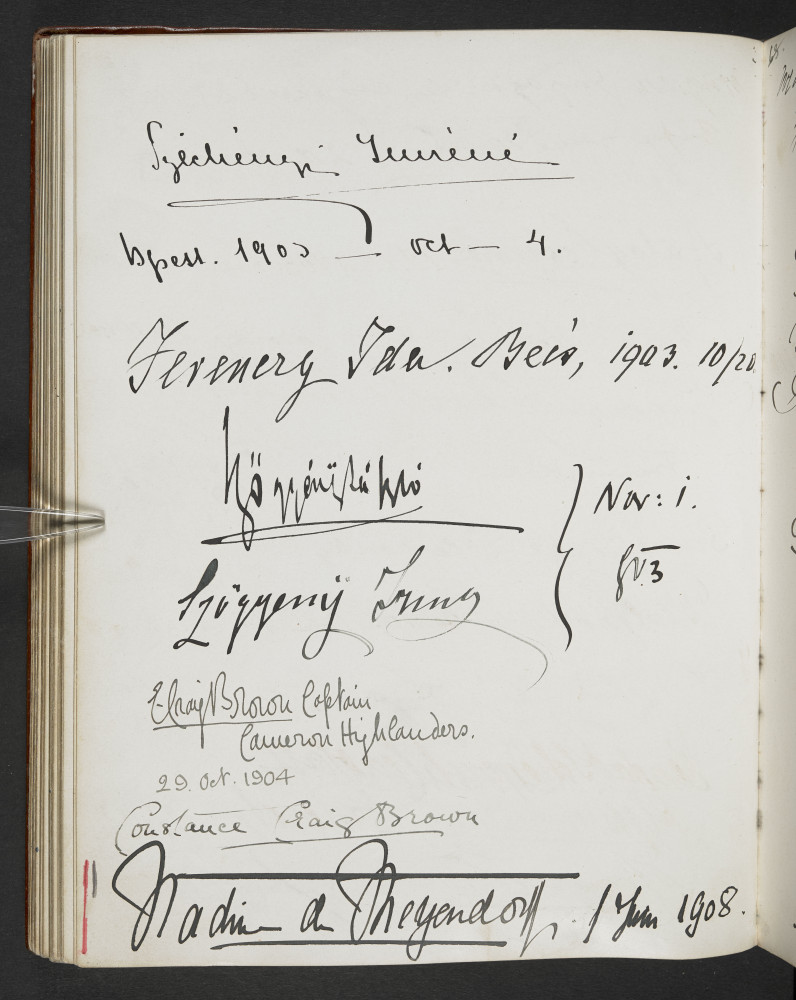 Széchényi Imréné
bpest. 1903 — oct — 4.
Ferenczy Ida. Bécs, 1903. 10/20.
Szögyény
Nov: 1.
Szögyeny Irma
903
E Craig Brown Captain
Cameron Highlanders.
29. Oct. 1904
Constance Craig Brown
Nadine de Meyendorff. 1 Juin 1908.